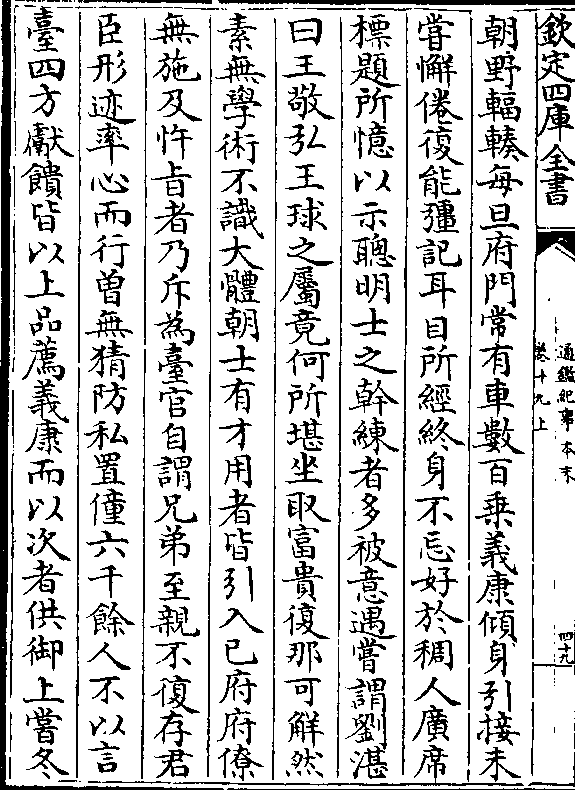 欽定四庫全書
通鑑紀事本末
卷十九上
四十九
朝野輻輳每旦府門常有車數百乗義康傾身引接未
嘗懈倦復能彊記耳目所經終身不忘好於稠人廣席
標題所憶以示聰明士之幹練者多被意遇嘗謂劉湛
曰王敬弘王球之屬竟何所堪坐取富貴復那可解然
素無學術不識大體朝士有才用者皆引入已府府僚
無施及忤㫖者乃斥為臺官自謂兄弟至親不復存君
臣形迹率心而行曽無猜防私置僮六千餘人不以言
臺四方獻饋皆以上品薦義康而以次者供御上嘗冬